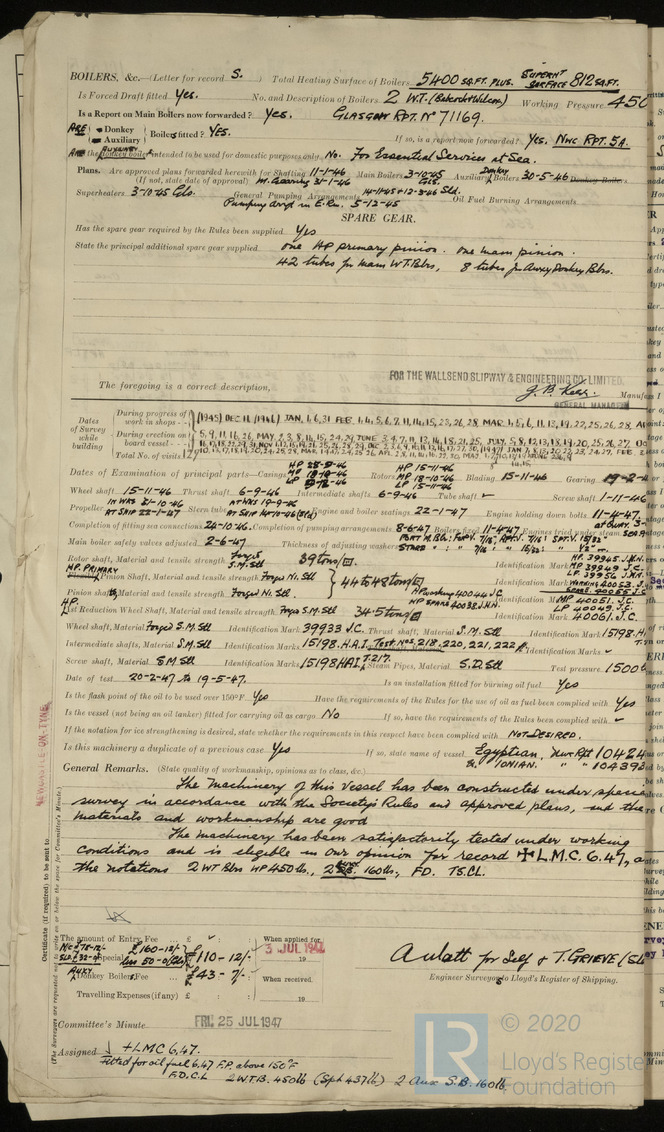 BOILERS, &c.—(Letter for record S. ) Total Heating Surface of Boilers 5400 SQ.FT. PLUS. SUPERHT SURFACE 812 SQ.FT.
Is Forced Draft fitted Yes. No. and Description of Boilers 2 W.T. (Babcock & Wilcox) Working Pressure 450
Is a Report on Main Boilers now forwarded? Yes. GLASGOW RPT. No 71169.
ARE a Donkey / an Auxiliary } Boilers fitted? YES. If so, is a report now forwarded? Yes. NWC RPT. 5A.
Are the AUXILIARY donkey boilers intended to be used for domestic purposes only No. For Essential Services at Sea.
Plans. Are approved plans forwarded herewith for Shafting 11-1-46 Main Boilers 3-10-45 Gls. Auxiliary Donkey Boilers 30-5-46 Donkey Boilers
(If not, state date of approval) M. Gearing 31-1-46
Superheaters 3-10-45 Gls. General Pumping Arrangements 14-11-45 & 12-3-46 Sld. Oil Fuel Burning Arrangements
Pumping arrgt in E.Rm. 5-12-45
SPARE GEAR.
Has the spare gear required by the Rules been supplied Yes
State the principal additional spare gear supplied one HP primary pinion. one main pinion.
42 tubes for main W.T. Blrs, 8 tubes for Auxy Donkey Blrs.
FOR THE WALLSEND SLIPWAY & ENGINEERING CO. LIMITED,
The foregoing is a correct description,
GENERAL MANAGER
Manufac
Dates of Survey while building
During progress of work in shops - - (1945) DEC 11 (1946) JAN. 1, 6, 31 FEB
During erection on board vessel - - -
Total No. of visits 127
Dates of Examination of principal parts—Casings HP 28-8-46 Rotors HP 15-11-46 MP 18-10-46 LP 15-11-46 Blading 15-11-46 Gearing
Wheel shaft 15-11-46 Thrust shaft 6-9-46 Intermediate shafts 6-9-46 Tube shaft ✓ Screw shaft 1-11-46
Propeller IN WKS 21-10-46 AT SHIP 22-1-47 Stern tube AT WKS 19-9-46 AT SHIP 14-10-46 (Sld) Engine and boiler seatings 22-1-47 Engine holding down bolts 11-4-47.
Completion of fitting sea connections 24-10-46. Completion of pumping arrangements 8-6-47 Boilers fixed 11-4-47. Engines tried under steam
Main boiler safety valves adjusted 2-6-47 Thickness of adjusting washers
Rotor shaft, Material and tensile strength Forged S.M. Stl 39 ton/□ Identification Mark HP. 39945 J.H.N. MP 39949 J.C. LP 39956 J.H.N.
HP. PRIMARY Pinion Shaft, Material and tensile strength Forged Ni. Stl. } 44 & 48 ton/□ Identification Mark
Pinion shaft, Material and tensile strength Forged Ni. Stl. HP working 40044 J.C. HP SPARE 40038 J.H.N. Identification Mark MP 40051. J.C. LP 40049. J.C.
HP. 1st Reduction Wheel Shaft, Material and tensile strength Forged S.M. Stl 34.5 ton/□ Identification Mark 40061. J.C.
Wheel shaft, Material Forged S.M. Stl Identification Mark 39933 J.C. Thrust shaft, Material S.M. Stl Identification Mark 15198.H.
Intermediate shafts, Material S.M. Stl Identification Marks 15198. H.A.I. Test Nos. 218, 220, 221, 222 Tube shaft, Material Identification Marks ✓
Screw shaft, Material S.M Stl Identification Marks 15198 HAI T.217. Steam Pipes, Material S.D. Stl Test pressure 1500
Date of test 20-2-47 to 19-5-47. Is an installation fitted for burning oil fuel Yes
Is the flash point of the oil to be used over 150°F. Yes Have the requirements of the Rules for the use of oil as fuel been complied with Yes
Is the vessel (not being an oil tanker) fitted for carrying oil as cargo No If so, have the requirements of the Rules been complied with ✓
If the notation for ice strengthening is desired, state whether the requirements in this respect have been complied with NOT DESIRED.
Is this machinery a duplicate of a previous case Yes If so, state name of vessel Egyptian, NWC Rpt 10424
IONIAN. " " 10439
General Remarks. (State quality of workmanship, opinions as to class, &c.)
The machinery of this vessel has been constructed under specia
survey in accordance with the Society's Rules and approved plans, and the
materials and workmanship are good
The machinery has been satisfactorily tested under working
conditions and is eligible in our opinion for record ✠ L.M.C. 6.47, a
the notations 2 WT Blrs WP 450 lb., 2 160 lb., FD. TS.CL.
NEWCASTLE-ON-TYNE
Certificate (if required) to be sent to
(The Surveyors are requested not to write on or below the space for Committee's Minute.)
The amount of Entry Fee ... £ : When applied for,
Special £160-12/- less 50-0 £110-12/- 3 JUL 1947
19
Auxy Donkey Boilers Fee ... £43-7/- When received.
Travelling Expenses (if any) £ : 19
A. Watt for Self & T. GRIEVE
Engineer Surveyors to Lloyd's Register of Shipping.
Committee's Minute FRI. 25 JUL 1947
Assigned + LMC 6.47.
Fitted for oil fuel 6.47 F.P. above 150°F
F.D. C.L 2 W.T.B. 450 lb (Spt 437 lb) 2 Aux S.B. 160 lb.
LR © 2020
Lloyd's Registe
Foundation